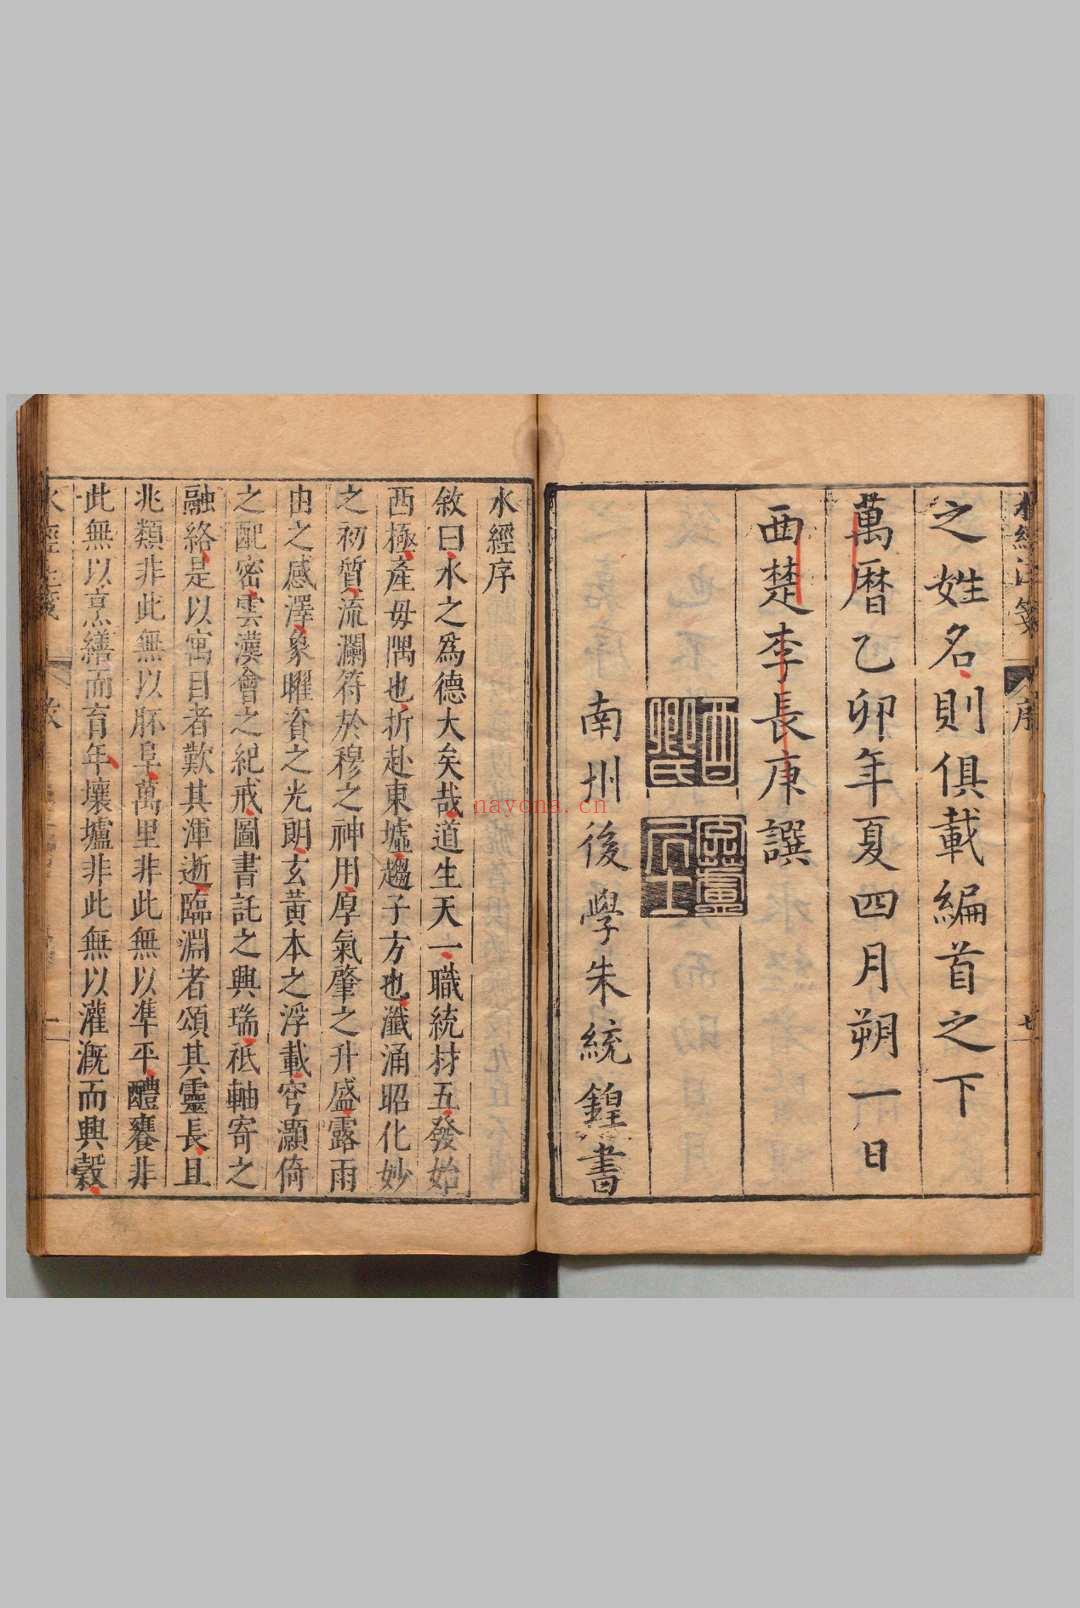 水經注箋
序
七
之姓名則俱載編首之下
萬曆乙卯年夏四月朔一日
西楚李長庚譔
南州後學朱統鍠書
水經序
敘曰水之爲德大矣哉道生天一職統材五發始
西極產毋隅也折赴東墟趨子方也瀸涌昭化妙
之初質流瀾符於穆之神用厚氣肇之升盛露雨
由之感澤象曜資之光朗玄黃本之浮載穹灝倚
之配密雲漢會之紀戒圖書託之興瑞祇軸寄之
融絡是以寓目者歎其渾逝臨淵者頌其靈長且
兆類非此無以胚阜萬里非此無以準平醴養非
此無以烹繕而育年壤壚非此無以灌溉而興穀
水經注箋
敘
一
nayona.cn